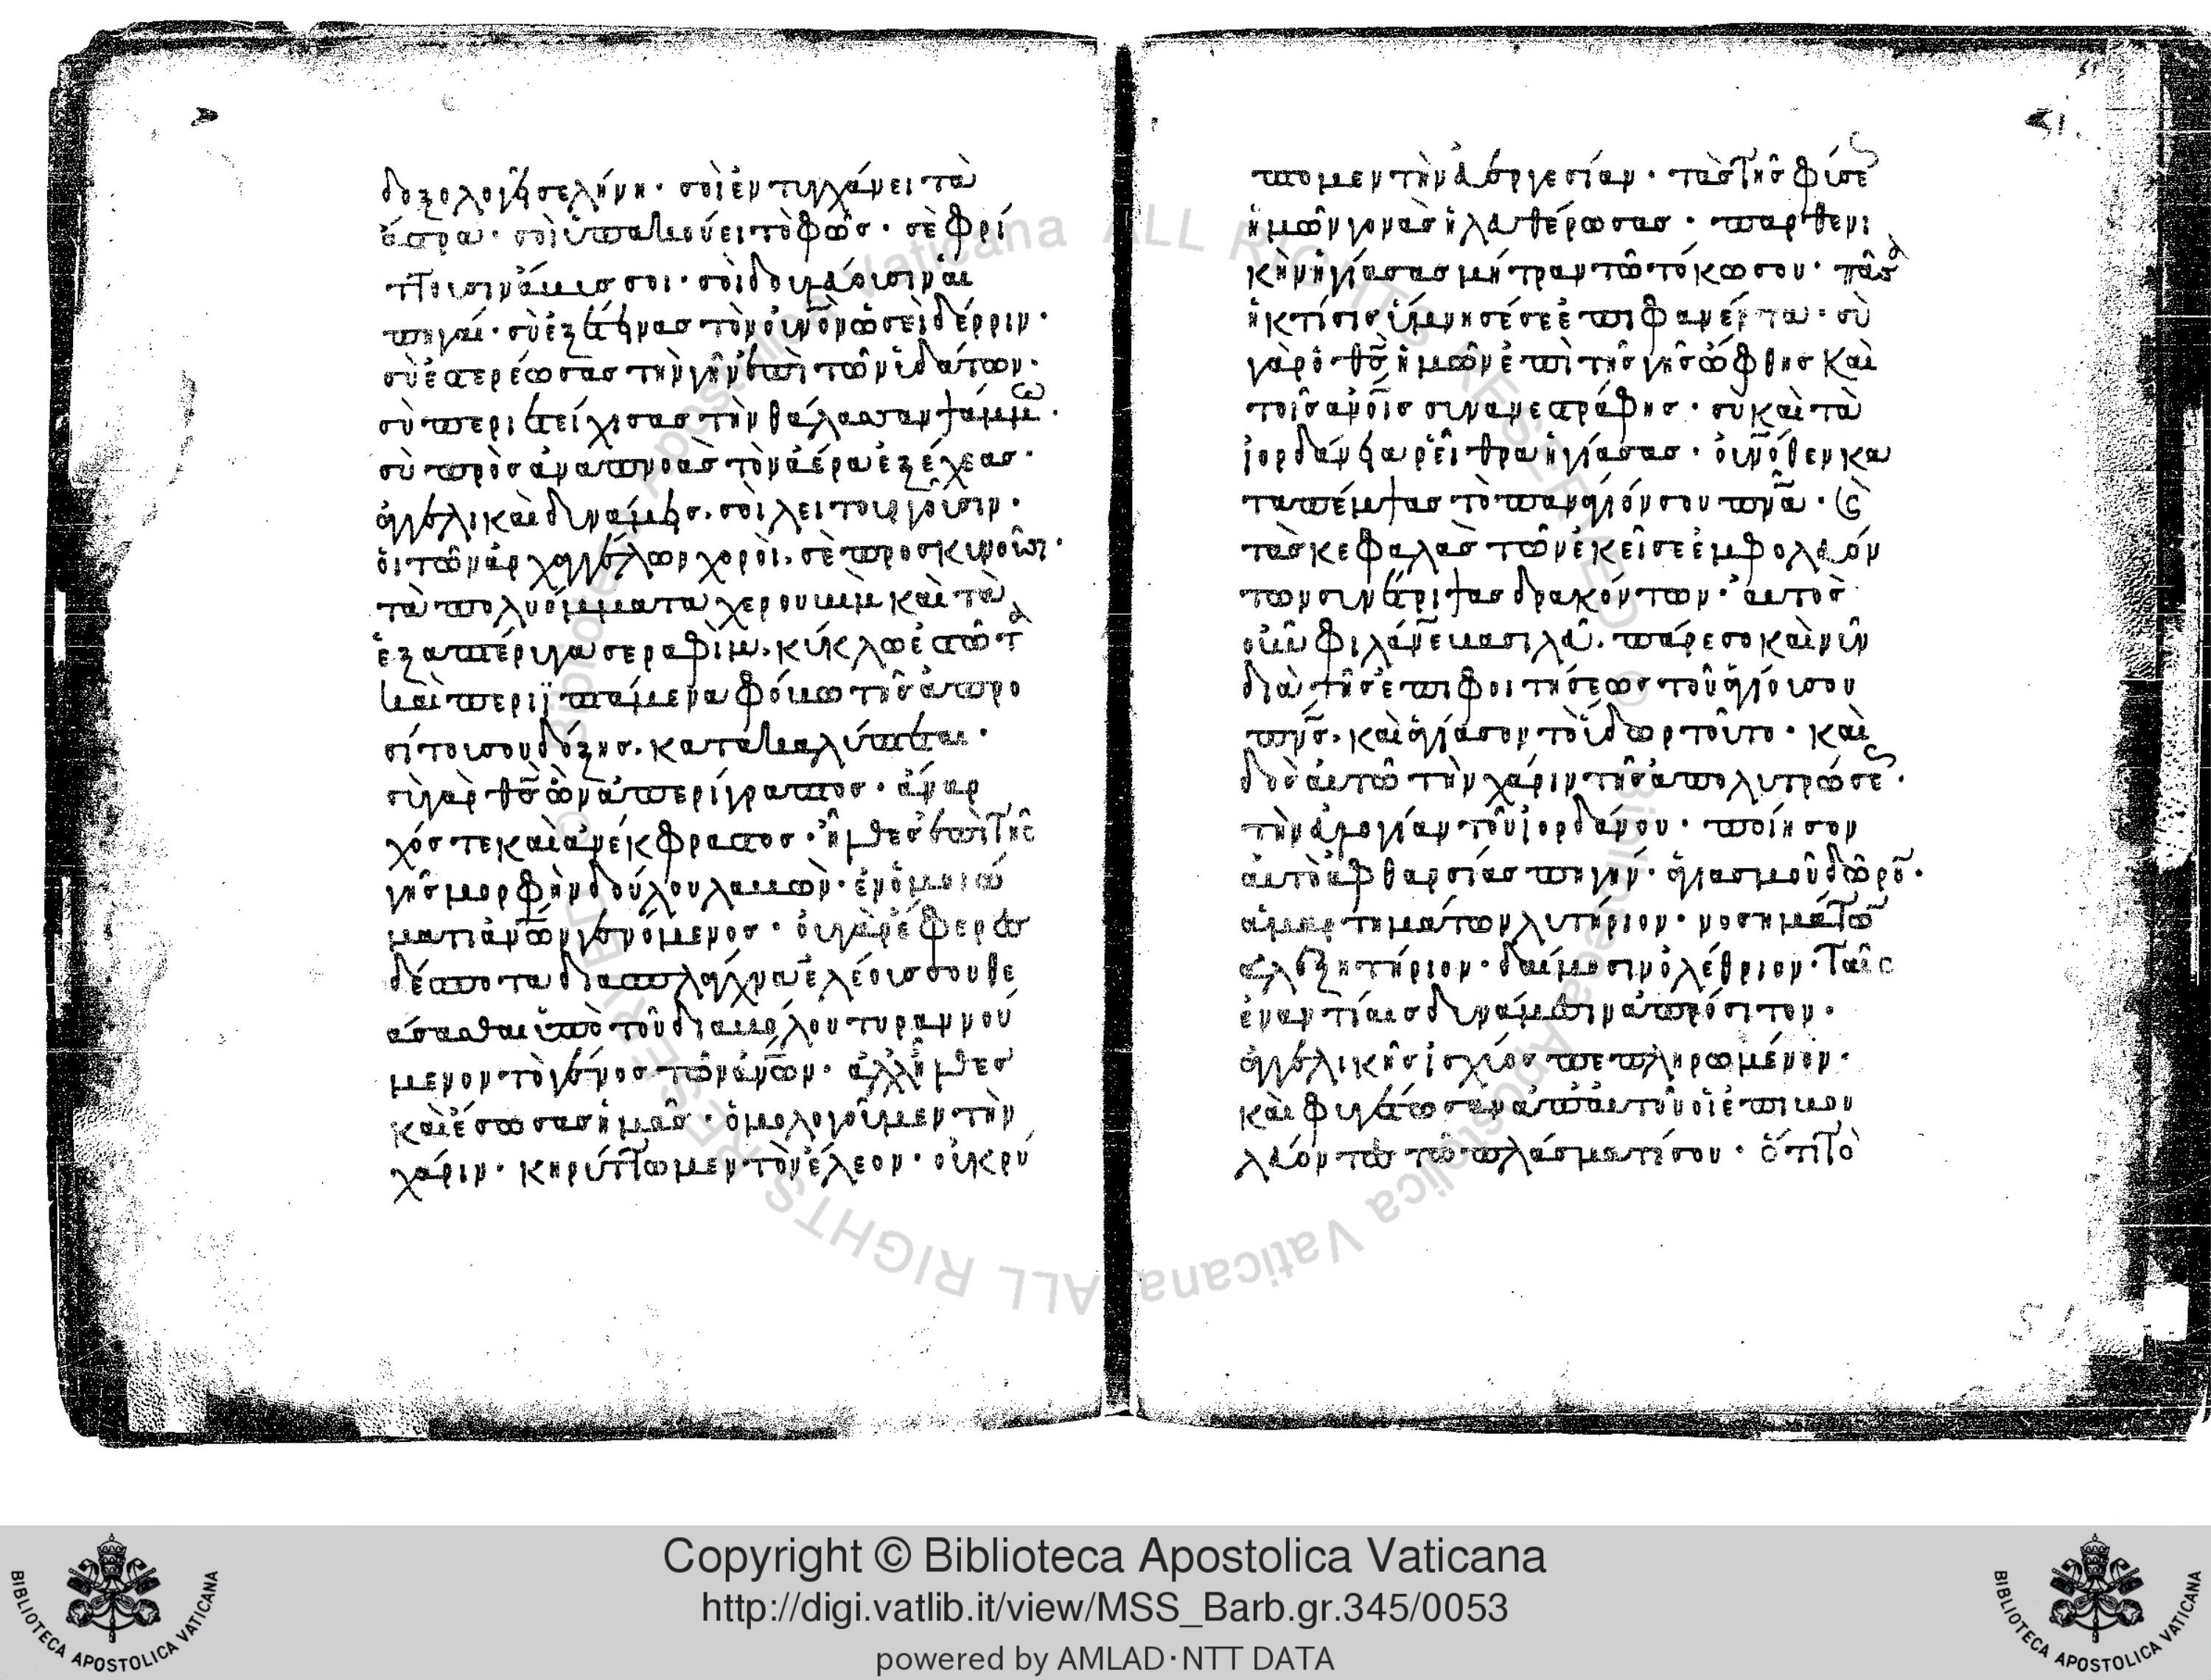 δοξολογεῖ σελήνη· σοὶ ἐντυγχάνει τὰ
ἄστρα· σοὶ ὑπακούει τὸ φῶς· σὲ φρί
ττουσιν ἄβυσσοι· σοὶ δουλεύουσιν αἱ
πηγαί· σὺ ἐξέτεινας τὸν οὐνὸν ὡσεὶ δέρριν·
σὺ ἐστερέωσας τὴν γῆν ἐπὶ τῶν ὑδάτων·
σὺ περιετείχισας τὴν θάλασσαν ψάμμω·
σὺ πρὸς ἀναπνοὰς τὸν ἀέρα ἐξέχεας·
ἀγγελικαὶ δυνάμεις· σοὶ λειτουργοῦσιν·
οἱ τῶν ἀρχαγγέλων χοροὶ· σὲ προσκυνοῦσι·
τὰ πολυόμματα χερουβὶμ καὶ τὰ
ἑξαπτέρυγα σεραφὶμ· κύκλω ἑστῶτα
καὶ περιϊπτάμενα φόβω τῆς ἀπρο
σίτου σου δόξης· κατακαλύπτεται·
σὺ γὰρ θς ὢν ἀπερίγραπτος· ἄναρ
χός τε καὶ ἀνέκφραστος· ἦλθες ἐπὶ τῆς
γῆς μορφὴν δούλου λαβὼν· ἐν ὁμοιώ
ματι ἀνων γενόμενος· οὐ γὰρ ἔφερες
δέσποτα διὰ σπλάγχνα ἐλέους σου θε
άσασθαι ὑπὸ τοῦ διαβόλου τυραννού
μενον τὸ γένος τῶν ἀνων· ἀλλ' ἦλθες
καὶ ἔσωσας ἡμᾶς· ὁμολογοῦμεν τὴν
χάριν· κηρύττωμεν τὸν ἔλεον· οὐ κρύ
πτομεν τὴν εὐεργεσίαν· τὰς τῆς φύσε
ἡμῶν γονὰς ἠλευθέρωσας· παρθενι
κὴν ἡγίασας μήτραν τῶ τόκω σου· πᾶσα
ἡ κτίσις ὕμνησέ σε ἐπιφανέντα· σὺ
γὰρ ὁ θς ἡμῶν ἐπὶ τῆς γῆς ὤφθης καὶ
τοῖς ἀνοις συνανεστράφης· σὺ καὶ τὰ
ἰορδάνεια ῥεῖθρα ἡγίασας· οὐνόθεν κα
ταπέμψας τὸ πανάγιόν σου πνα· καὶ
τὰς κεφαλὰς τῶν ἐκεῖσε ἐμφολευόν
των συνέτριψας δρακόντων· αὐτὸς
οὖν φιλάνε βασιλεῦ· πάρεσο καὶ νῦν
διὰ τῆς ἐπιφοιτήσεως τοῦ ἁγίου σου
πνς· καὶ ἁγίασον τὸ ὕδωρ τοῦτο· καὶ
δὸς αὐτῶ τὴν χάριν τῆς ἀπολυτρώσε·
τὴν εὐλογίαν τοῦ ἰορδάνου· ποίησον
αὐτὸ ἀφθαρσίας πηγήν· ἁγιασμοῦ δῶρον·
ἁμαρτημάτων λυτήριον· νοσημάτων
ἀλεξητήριον· δαίμοσιν ὀλέθριον· ταῖς
ἐναντίαις δυνάμεσιν ἀπρόσιτον·
ἀγγελικῆς ἰσχύος πεπληρωμένον·
καὶ φυγέτωσαν ἀπ' αὐτοῦ οἱ ἐπιβου
λεύοντες τῶ πλάσματί σου· ὅτι τὸ
Copyright © Biblioteca Apostolica Vaticana
http://digi.vatlib.it/view/MSS_Barb.gr.345/0053
powered by AMLAD·NTT DATA